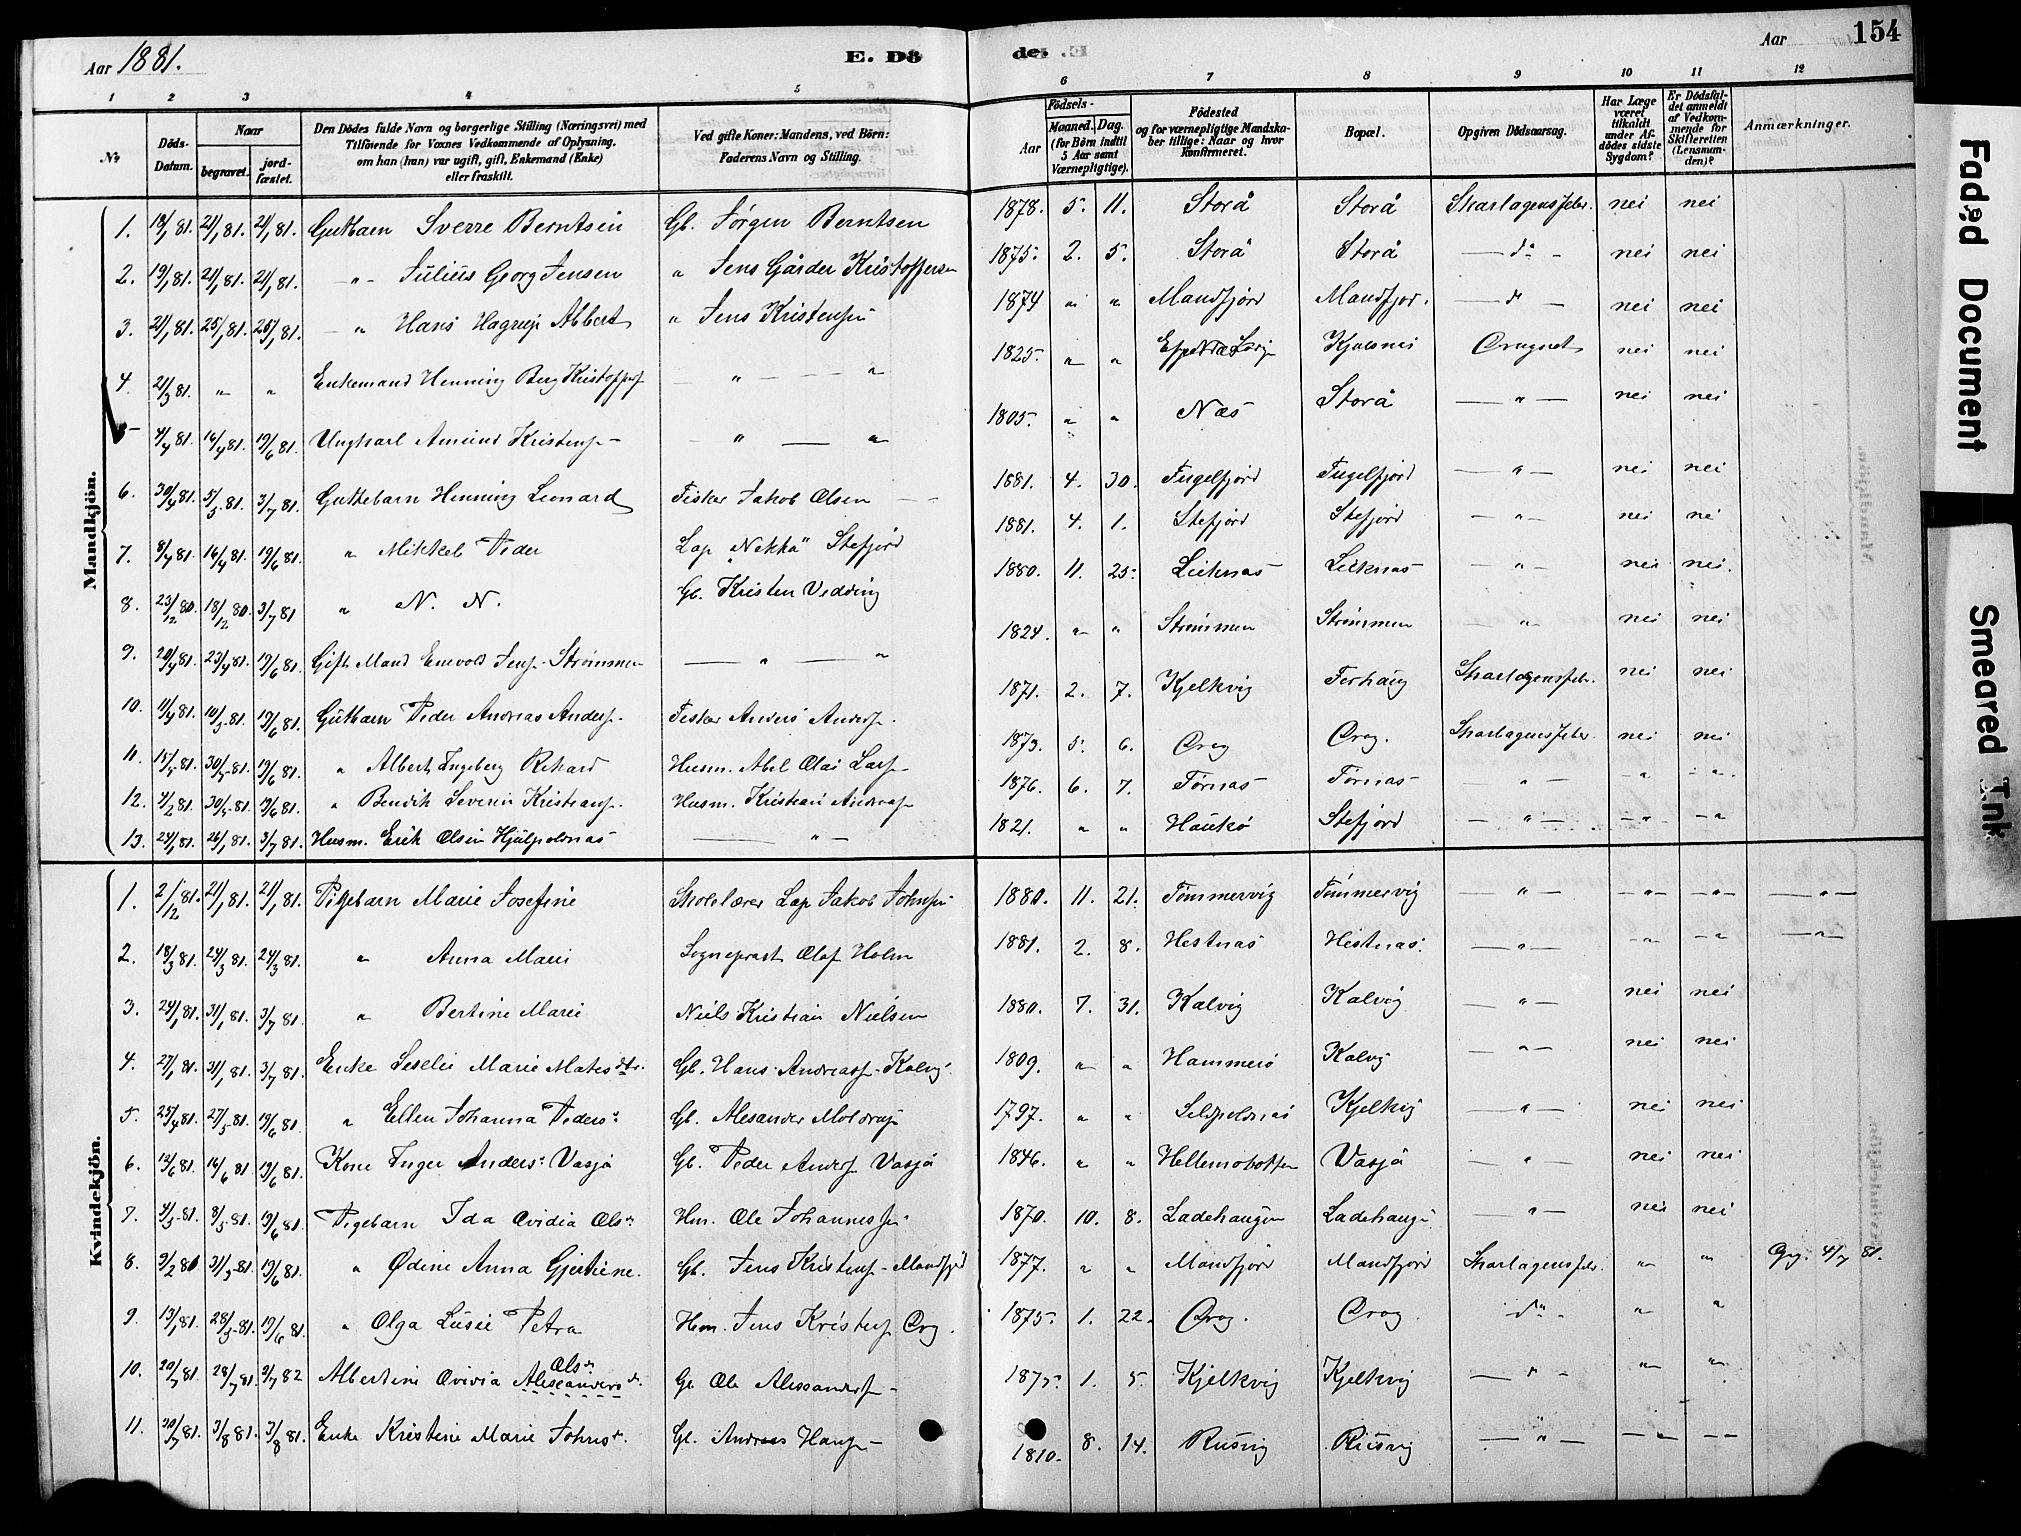 Aar 1881. E. Dö de: Aar 154
1 2 3 4 5 6 7 8 9 10 11 12
No Döds-Datum. Naar begravet. jord-fæstet. Den Dödes fulde Navn og borgerlige Stilling (Næringsvei) med Tilföiende for Voxnes Vedkommende af Oplysning, om han (hun) var ugift, gift, Enkemand (Enke) eller fraskilt. Ved gifte Koner: Mandens, ved Börn: Faderens Navn og Stilling. Födsels- Aar Maaned. Dag. (for Börn indtil 5 Aar samt Værnepligtige). Födested og for værnepligtige Mandska-ber tillige: Naar og hvor Konfirmeret. Bopæl. Opgiven Dödsaarsag. Har Læge været tilkaldt under Af-dödes sidste Sygdom? Er Dödsfal-det anmeldt af Vedkom-mende for Skifteretten (Lensman-den)? Anmærkninger.
Mandkjön.
1. 19/1 81. 21/1 81. 21/1 81. Gutbarn Sverre Berntsen Gb. Jørgen Berntsen 1878. 5. 11. Storå Storå Skarlagensfeber. nei nei
2. 19/1 81. 21/1 81. 21/1 81. -"- Julius Georg Jensen " Jens Gårder Kristoffersen 1875. 2. 5. Storå Storå — do - nei nei
3. 21/1 81. 25/1 81. 25/1 81. - " Hans Hagrup Albert " Jens Kristensen 1874 " " Mandfjord Mandfjor. — do — nei nei
4. 21/3 81. " " Enkemand Henning Berg Kristoffers — " — " 1825. " " Kjølsnes nei nei
5 4/4 81. 16/4 81. 19/6 81. Ungkarl Amund Kristens — " — " 1805. " " Næs Storå — " — nei nei
6. 30/4 81. 5/5 81. 3/7 81. Guttebarn Henning Leonard Fisker Jakob Olsen 1881. 4. 30. Fugelfjord Fugelfjord — " — nei nei
7. 8/4 81. 16/4 81. 19/6 81. " Mikkel Peder Lap "Nekkå" Stefjord 1881. 4. 1. Stefjord Stefjord — " — nei nei
8. 23/12 80. 18/12 80. 3/7 81 " N. N. Gb. Kristen Vedding 1880. 11. 25. Leiknæs Leiknæs — " — nei nei.
9. 20/4 81. 23/4 81. 19/6 81. Gift Mand Enevold Jens. Strømmen — " — " 1824. " " Strømmen Strømmen — " — nei nei
10. 11/4 81. 10/5 81. 19/6 81. Gutbarn Peder Andreas Anders. Fisker Anders Anders. 1871. 2. 7. Kjelkvig Forhaug Skarlagensfeber. nei nei
11. 15/5 81. 30/5 81. 19/6 81. " Albert Ingeberg Rikard Husm. Abel Olai Lars 1873. 5. 6. Drag Drag. Skarlagensfeber nei nei
12. 4/2 81. 30/5 81. 19/6 81. " Bendik Severin Kristians. Husm. Kristian Andreas 1876. 6. 7. Tørnæs Tørnæs — " — - " - " .
13. 24/1 81. 26/1 81. 3/7 81. Husm. Erik Olsen — " — 1821. " " Haukø Stefjord — " — - " - - "
Kvindekjön.
1. 2/12 81. 21/1 81. 21/1 81. Pigebarn Marie Josefine Skolelærer Lap Jakob Johnsen 1880. 11. 21. Tømmervig Tømmervig — " — — " — — " — — " —
2. 18/3 81. 24/3 81. 24/3 81. " Anna Marie Sogneprest Olaf Holm 1881. 2. 8. Hestnæs Hestnæs. — " — - " - - " — " —
3. 24/1 81. 31/1 81. 3/7 81. " Bertine Marie Niels Kristian Nielsen 1880. 7. 31. Kalvig Kalvig — " — nei nei
4. 27/1 81. 31/1 81. 3/7 81. Enke Marie Matesdtr. Gb. Hans Andreass. Kalvig 1809. " " Hammerø Kalvig — " — nei nei
5. 25/4 81. 27/5 81. 19/6 81. " Ellen Johanna Peders: Gb. Alexander 1797. " " Kjelkvig — " — nei nei
6. 13/6 81. 14/6 81 19/6 81. Kone Inger Anders: Vasjå Gb. Peder Anders Vasjå 1846. " " Hellemobotten Vasjå — " — nei nei
7. 4/5 81. 8/5 81. 19/6 81. Pigebarn Ida Ovidia Ols: Hm. Ole Johannessen 1870. 10. 8. Ladehaugen Ladehaugn — " — nei nei
8. 9/2 80 31/5 81. 19/6 81. " Ødine Anna Gjertine. Gb. Jens Kristens. Mandfjord 1877. " " Mandfjord Mandfjord Skarlagensfeber. " " 4/7 81.
9. 13/1 81. 28/5 81. 19/6 81. " Olga Lusie Petra Hm. Jens Kristens. Drg. 1875. 1. 22. Drag. Drag. do " "
10. 20/7 81. 28/7 81. 9/7 82 Albertine Ovidia Alexanders Ols: Gb. Ole Alexanders 1875. 1. 5. Kjelkvig Kjelkvig — " — " "
11. 30/7 81. 3/8 81. 3/8 81. Enke Kristine Marie Johns: Gb. Andreas Hans 1810. 8. 14. Rusvig Rusvig — " — — " — — —
Faded Document
Smeared Ink